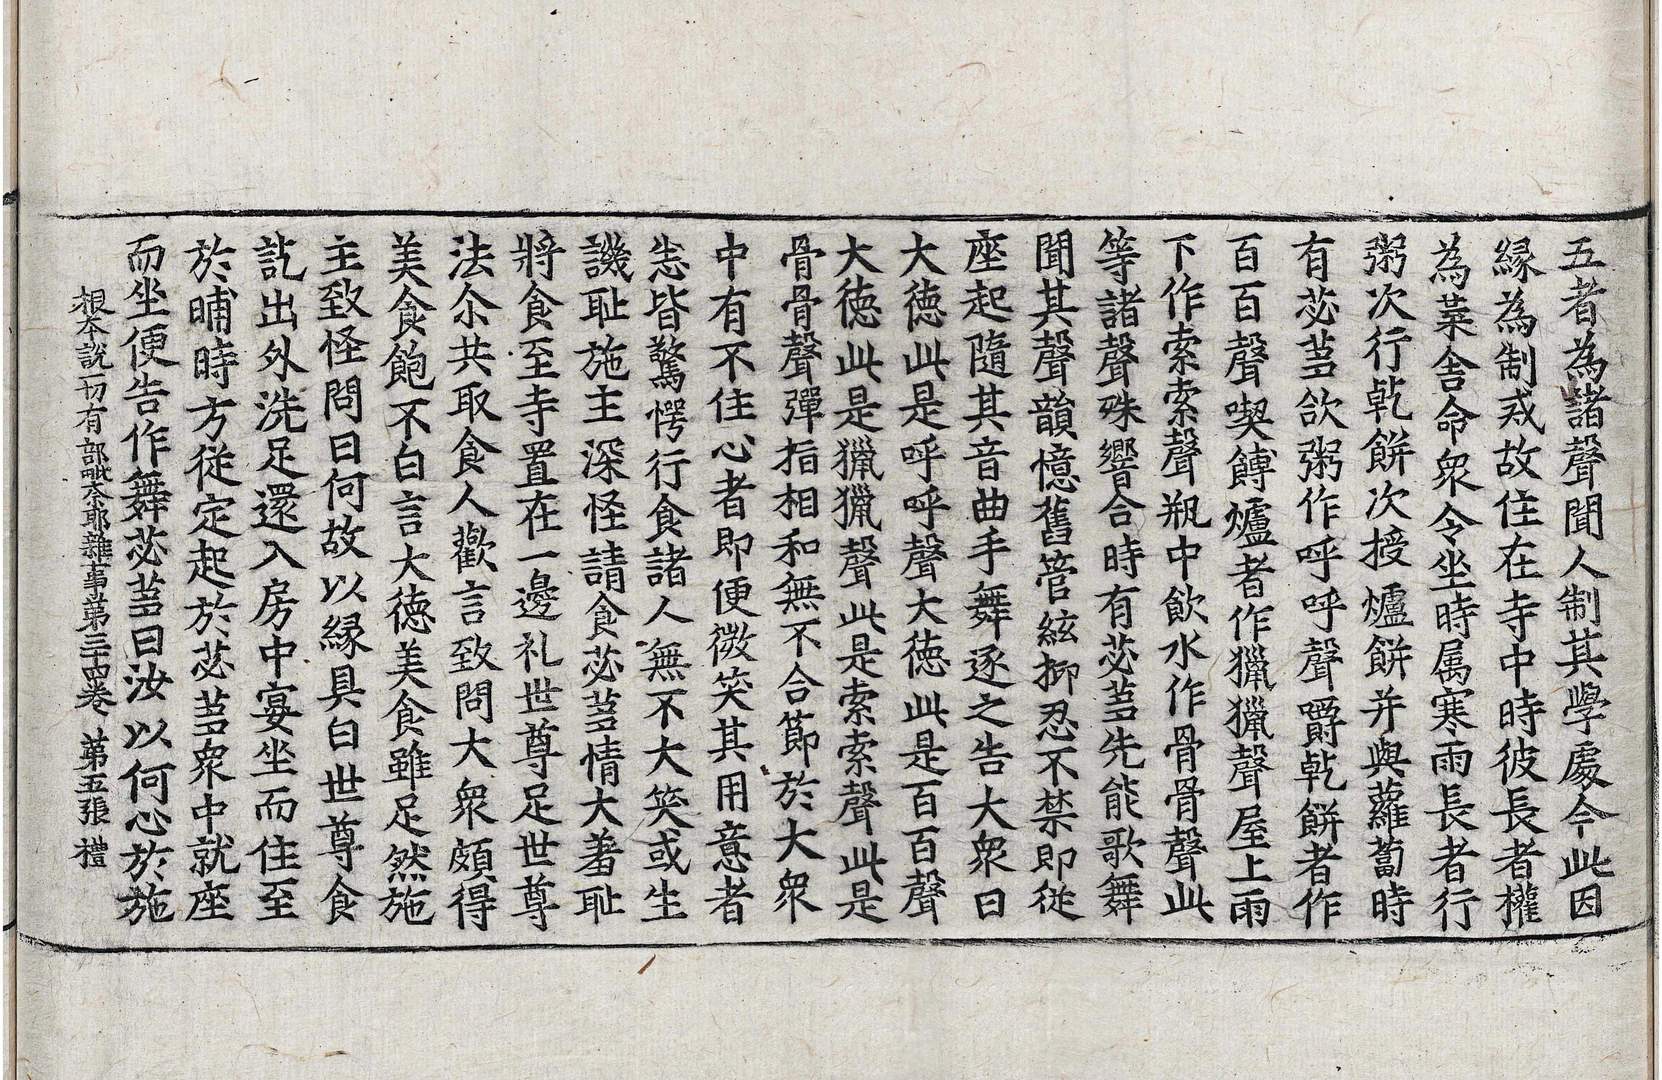 五者為諸聲聞人制其學處今此因
緣為制戒故住在寺中時彼長者權
為菜舍命衆令坐時属寒雨長者行
粥次行乹餅次授爐餅并與蘿蔔時
有苾蒭㰸粥作呼呼聲嚼乹餅者作
百百聲喫餺爐者作獵獵聲屋上雨
下作索索聲瓶中飲水作骨骨聲此
等諸聲殊響合時有苾蒭先能歌舞
聞其聲韻憶舊管絃抑忍不禁即從
座起隨其音曲手舞逐之告大衆曰
大徳此是呼呼聲大徳此是百百聲
大徳此是獵獵聲此是索索聲此是
骨骨聲彈指相和無不合節於大衆
中有不住心者即便微笑其用意者
悉皆驚愕行食諸人無不大笑或生
譏耻施主深怪請食苾蒭情大羞耻
將食至寺置在一邊礼世尊足世尊
法尒共取食人歡言致問大衆頗得
美食飽不白言大徳美食雖足然施
主致怪問曰何故以緣具白世尊食
訖出外洗足還入房中宴坐而住至
於晡時方從定起於苾蒭衆中就座
而坐便告作舞苾蒭曰汝以何心於施
根本說一切有部毗奈耶雜事第三十四卷 第五張 禮